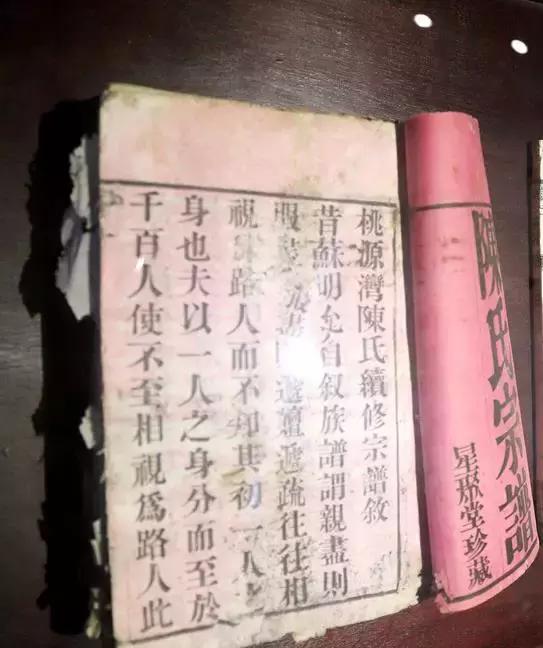 陳氏宗譜
星聚堂珍藏
桃源灣陳氏續修宗譜敘
昔蘇明允自叙族譜謂親盡則
服遞疏往往相
視路人而不知其初一人
身也夫以一人之身分而至於
千百人使不至相視爲路人此